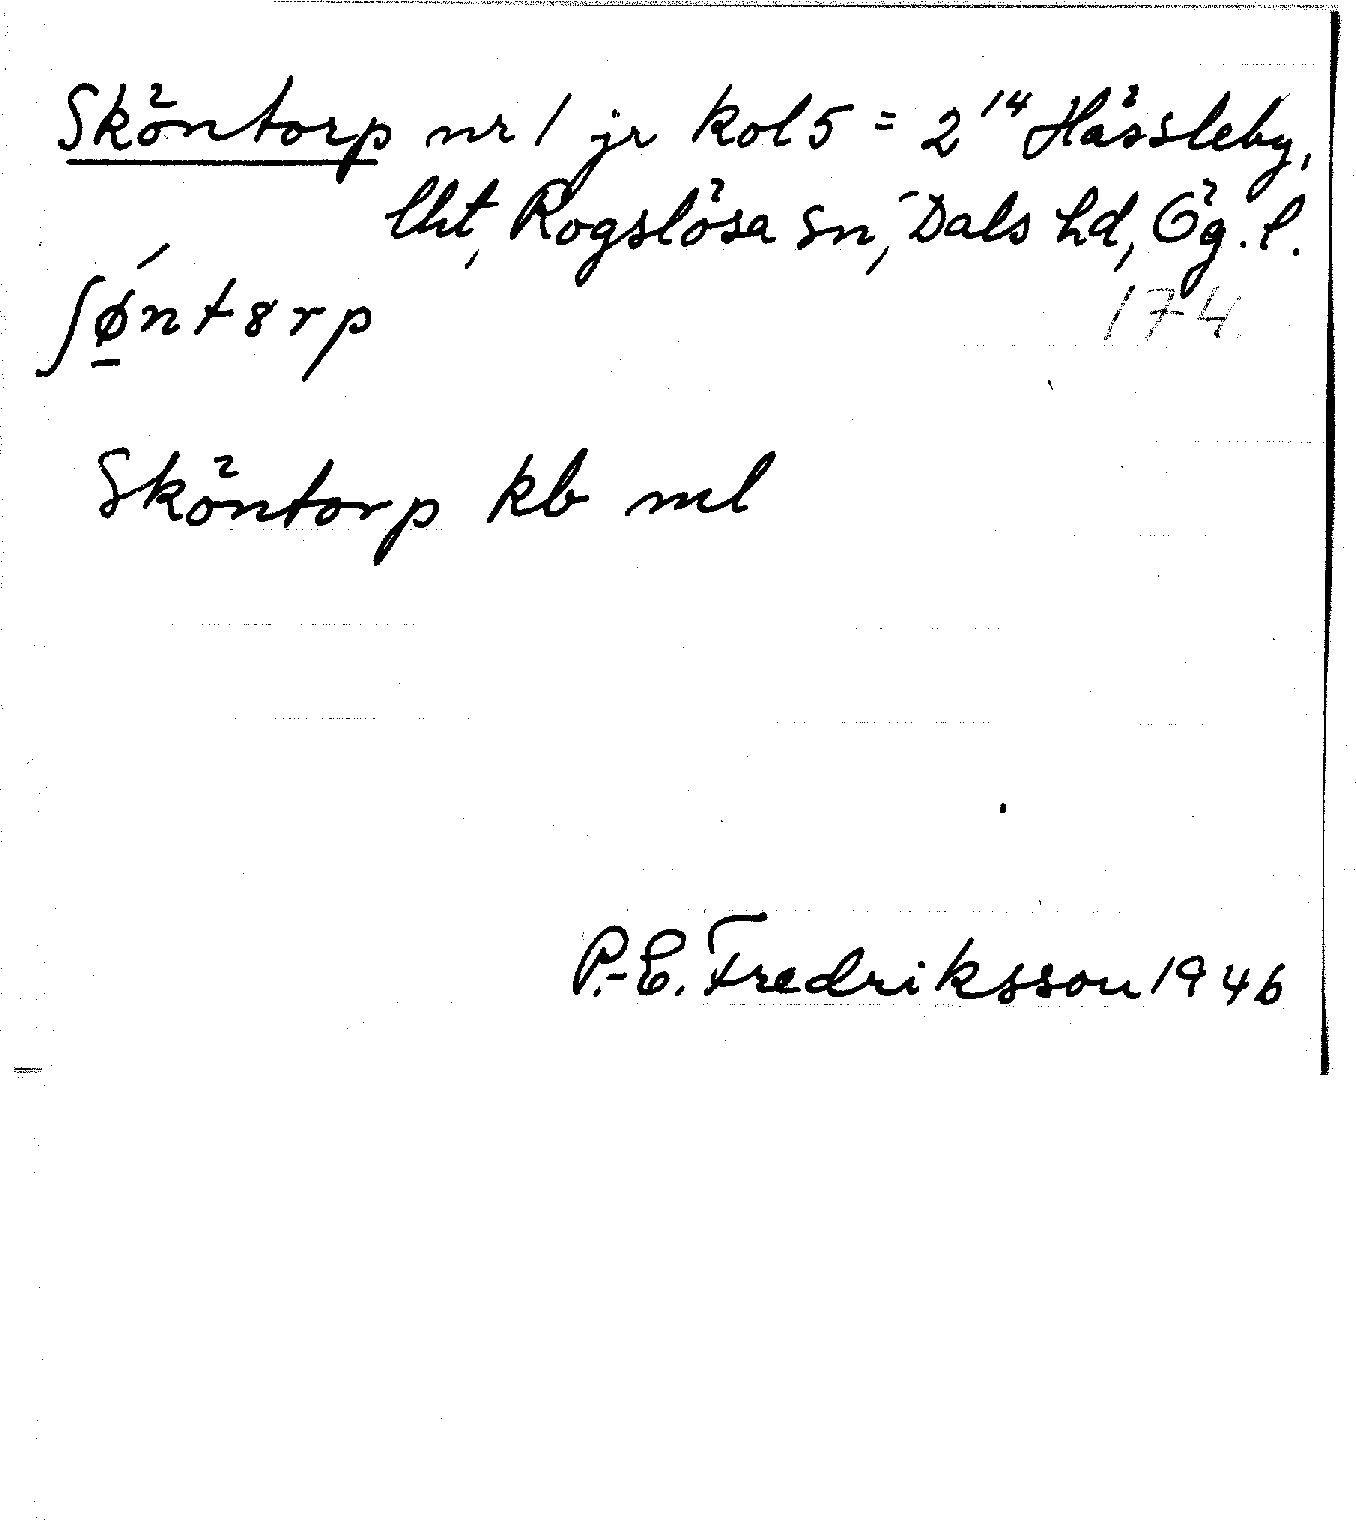 Sköntorp nr 1 jr kol 5 = 2¹⁴ Hässleby,
lht, Rogslösa sn, Dals hd, Ög. l.
174
ʃǿ̲nt8rp
Sköntorp kb ml
P.-E. Fredriksson 1946